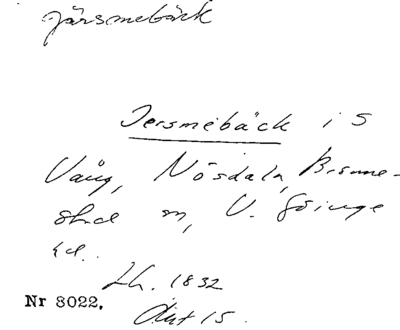 Järsmebäck
Jersmebäck i S
Vång, Nösdala, Brönne-
stad sn, V. Göinge
hd.
Lh. 1832
Nr 8022. Akt 15.